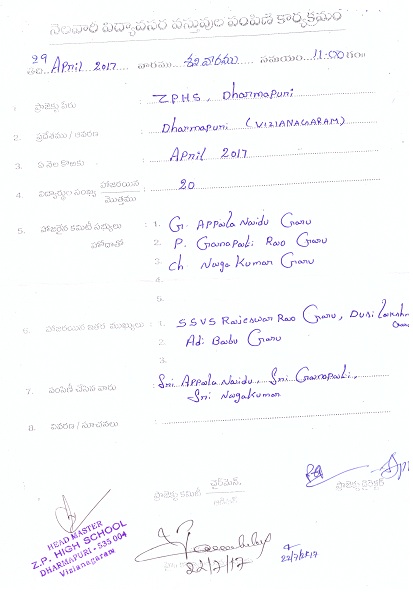 నెలవారి విద్యావసర వస్తువుల పంపిణి కార్యక్రమం
తేది 29 April 2017 వారము శనివారము సమయం 11:00గం
1. ప్రాజెక్టు పేరు ZPHS, Dharmapuri
2. ప్రదేశము / ఆవరణ Dharmapuri (VIZIANAGARAM)
3. ఏ నెల కొఱకు April 2017
4. విద్యార్థుల సంఖ్య హాజరయిన / మొత్తము 20
5. హాజరైన కమిటీ సభ్యులు 1. G. Appala Naidu Garu
హోదాతో 2. P. Ganapati Rao Garu
3. Ch Naga Kumar Garu
4.
5.
6. హాజరయిన ఇతర ముఖ్యులు 1. SSVS Rajeswar Rao Garu,
2. Adi Babu Garu
3.
7. పంపిణీ చేసిన వారు Sri Appala Naidu, Sri Ganapati,
Sri Nagakumar
8. వివరణ / సూచనలు
ప్రాజెక్టు కమిటీ చైర్మెన్
ప్రాజెక్టు డైరెక్టర్
HEAD MASTER
Z.P. HIGH SCHOOL
DHARMAPURI - 535 004
Vizianagaram
22/7/17
22/7/2017